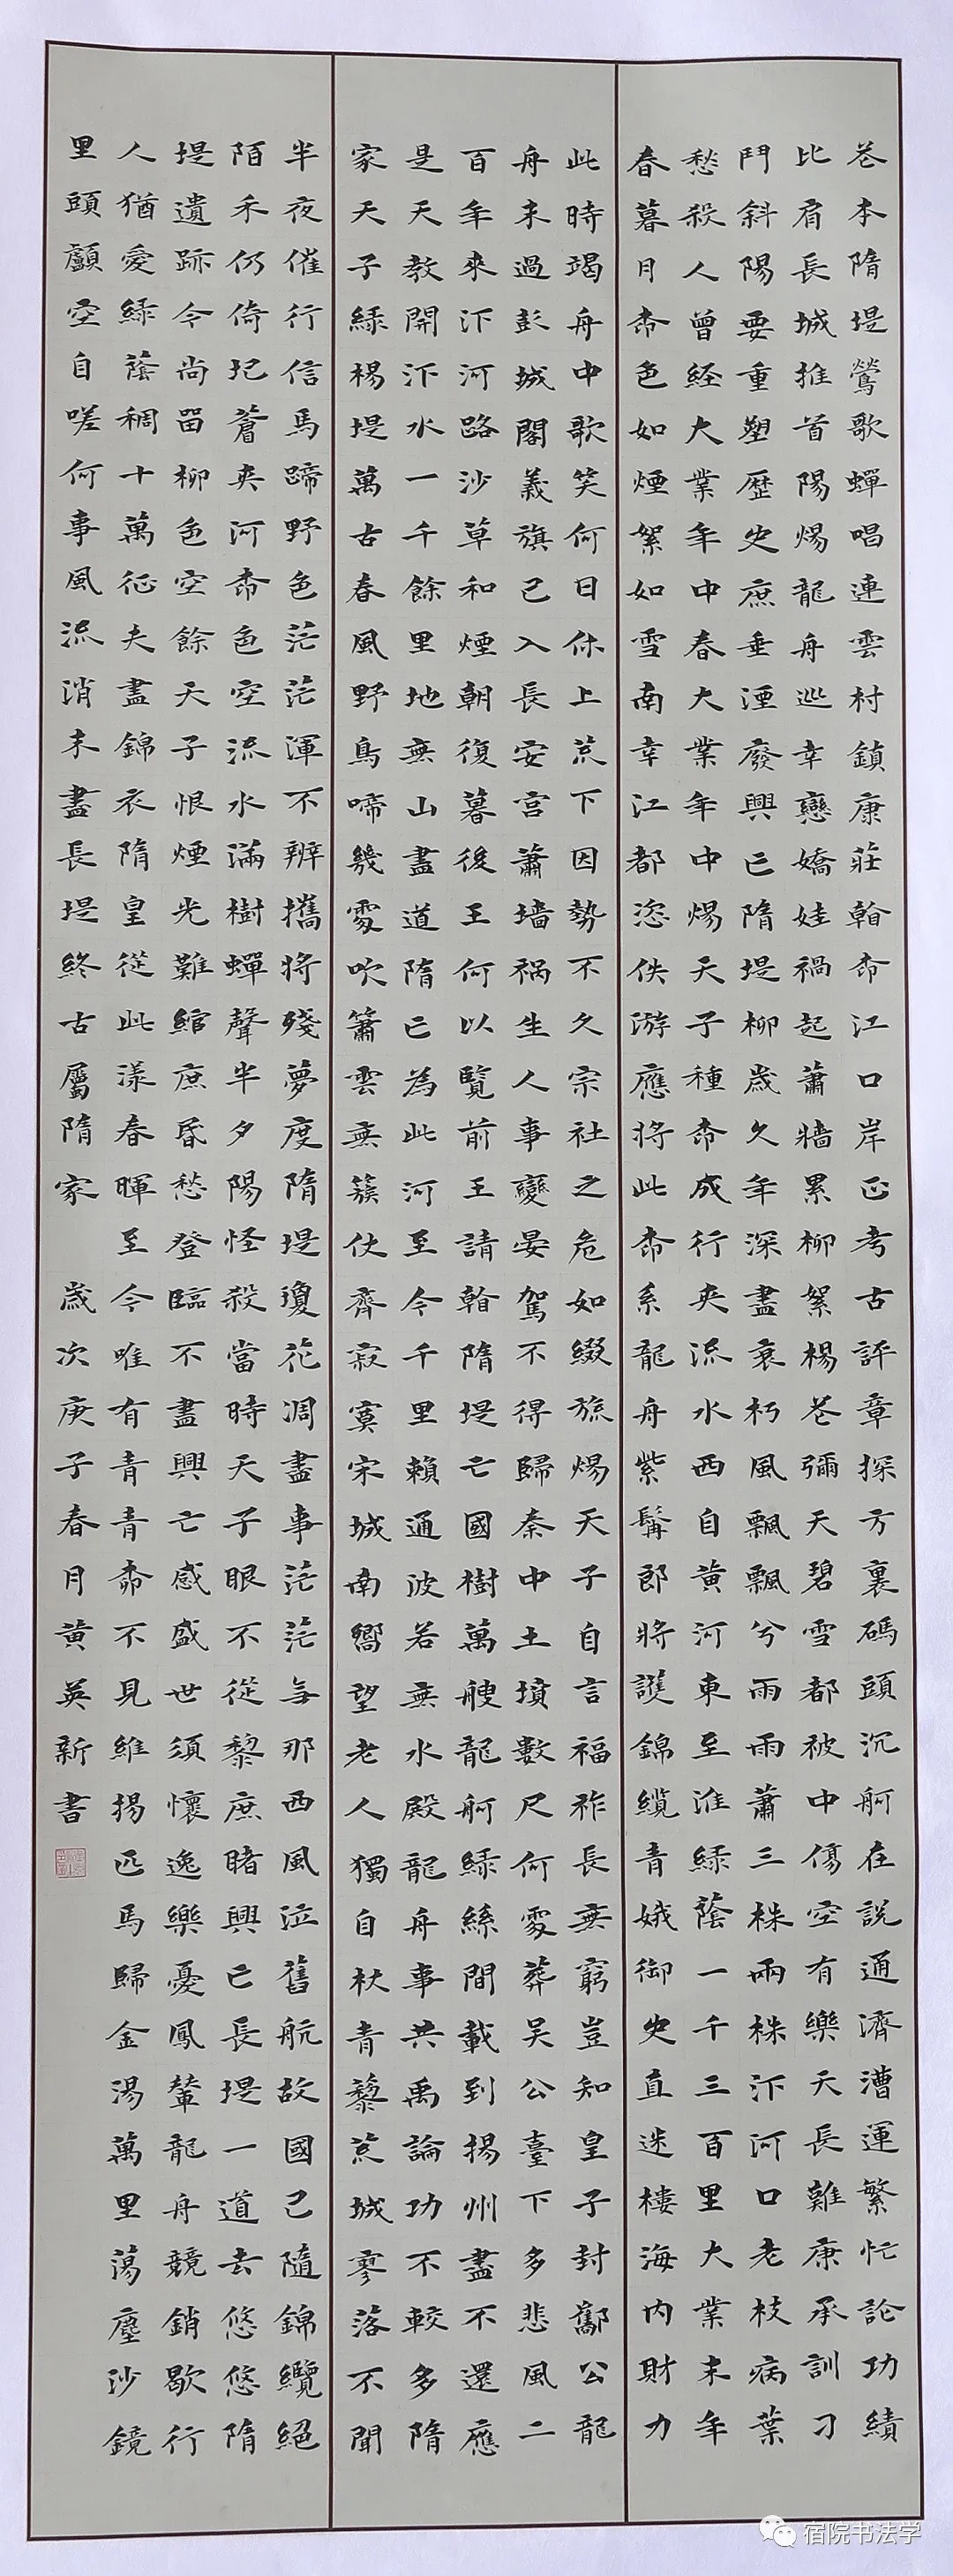 巷本隋堤鶯歌蟬唱連雲村鎮康莊翰帋江口岸正考古評章探方裏碼頭沉舸在說通濟漕運繁忙論功績
比肩長城推首陽煬龍舟巡幸戀嬌娃禍起蕭牆累柳絮楊巷彌天碧雪都被中傷空有樂天長難康承訓刁
鬥斜陽要重塑歷史庶垂湮廢興亡隋堤柳歲久年深盡衰朽風飄飄兮雨雨蕭三株兩株汴河口老枝病葉
愁殺人曾経大業年中春大業年中煬天子種帋成行夾流水西自黃河東至淮緑蔭一千三百里大業末年
春暮月帋色如煙絮如雪南幸江都恣佚游應將此帋系龍舟紫髯郎將護錦纜青娥御史直迷樓海内財力
此時竭舟中歌笑何日休上荒下困勢不久宗社之危如綴旒煬天子自言福祚長無窮豈知皇子封酅公龍
舟未過彭城閣義旗已入長安宮蕭墻禍生人事變晏駕不得歸秦中土墳數尺何處葬吴公臺下多悲風二
百年來汴河路沙草和煙朝復暮後王何以覽前王請翰隋堤亡國樹萬艘龍舸緑絲間載到揚州盡不還應
是天教開汴水一千餘里地無山盡道隋亡為此河至今千里賴通波若無水殿龍舟事共禹論功不較多隋
家天子緑楊堤萬古春風野鳥啼幾處吹簫雲無簇仗齊寂寞宋城南嚮望老人獨自杖青藜荒城寥落不聞
半夜催行信馬蹄野色茫茫渾不辨攜將殘夢度隋堤瓊花凋盡事茫茫与那西風泣舊航故國已隨錦纜絕
陌禾仍倚圯蒼夾河帋色空流水滿樹蟬聲半夕陽怪殺當時天子眼不從黎庶睹興亡長堤一道去悠悠隋
堤遺跡今尚留柳色空餘天子恨煙光難綰庶昏愁登臨不盡興亡感盛世須懷逸樂憂鳳輦龍舟競銷歇行
人猶愛緑蔭稠十萬征夫盡錦衣隋皇從此漾春暉至今唯有青青帋不見維揚匹馬歸金湯萬里蕩塵沙鏡
里頭顱空自嗟何事風流消未盡長堤終古屬隋家 歲次庚子春月黃英新書
宿院书法学